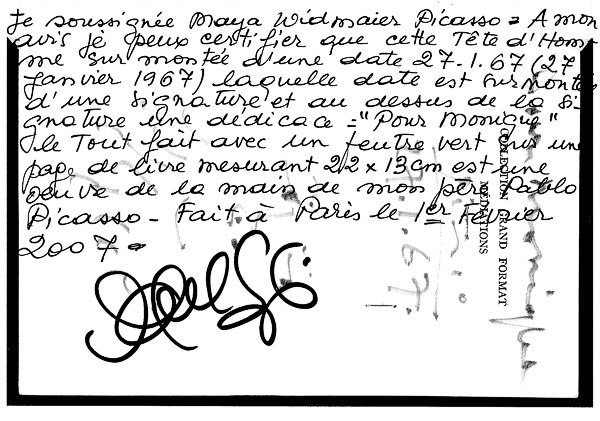 Je soussignée Maya Widmaier Picasso = A mon
avis je peux certifier que cette Tête d'Hom-
me surmontée d'une date 27.1.67 (27
janvier 1967) laquelle date est surmontée
d'une signature et au dessus de la si-
gnature une dédicace = "Pour Monique"
le Tout fait avec un feutre vert sur une
page de livre mesurant 22 x 13cm est une
oeuvre de la main de mon père Pablo
Picasso - Fait à Paris le 1er Février
2007 -
COLLECTION GRAND FORMAT
MÉDIATIONS